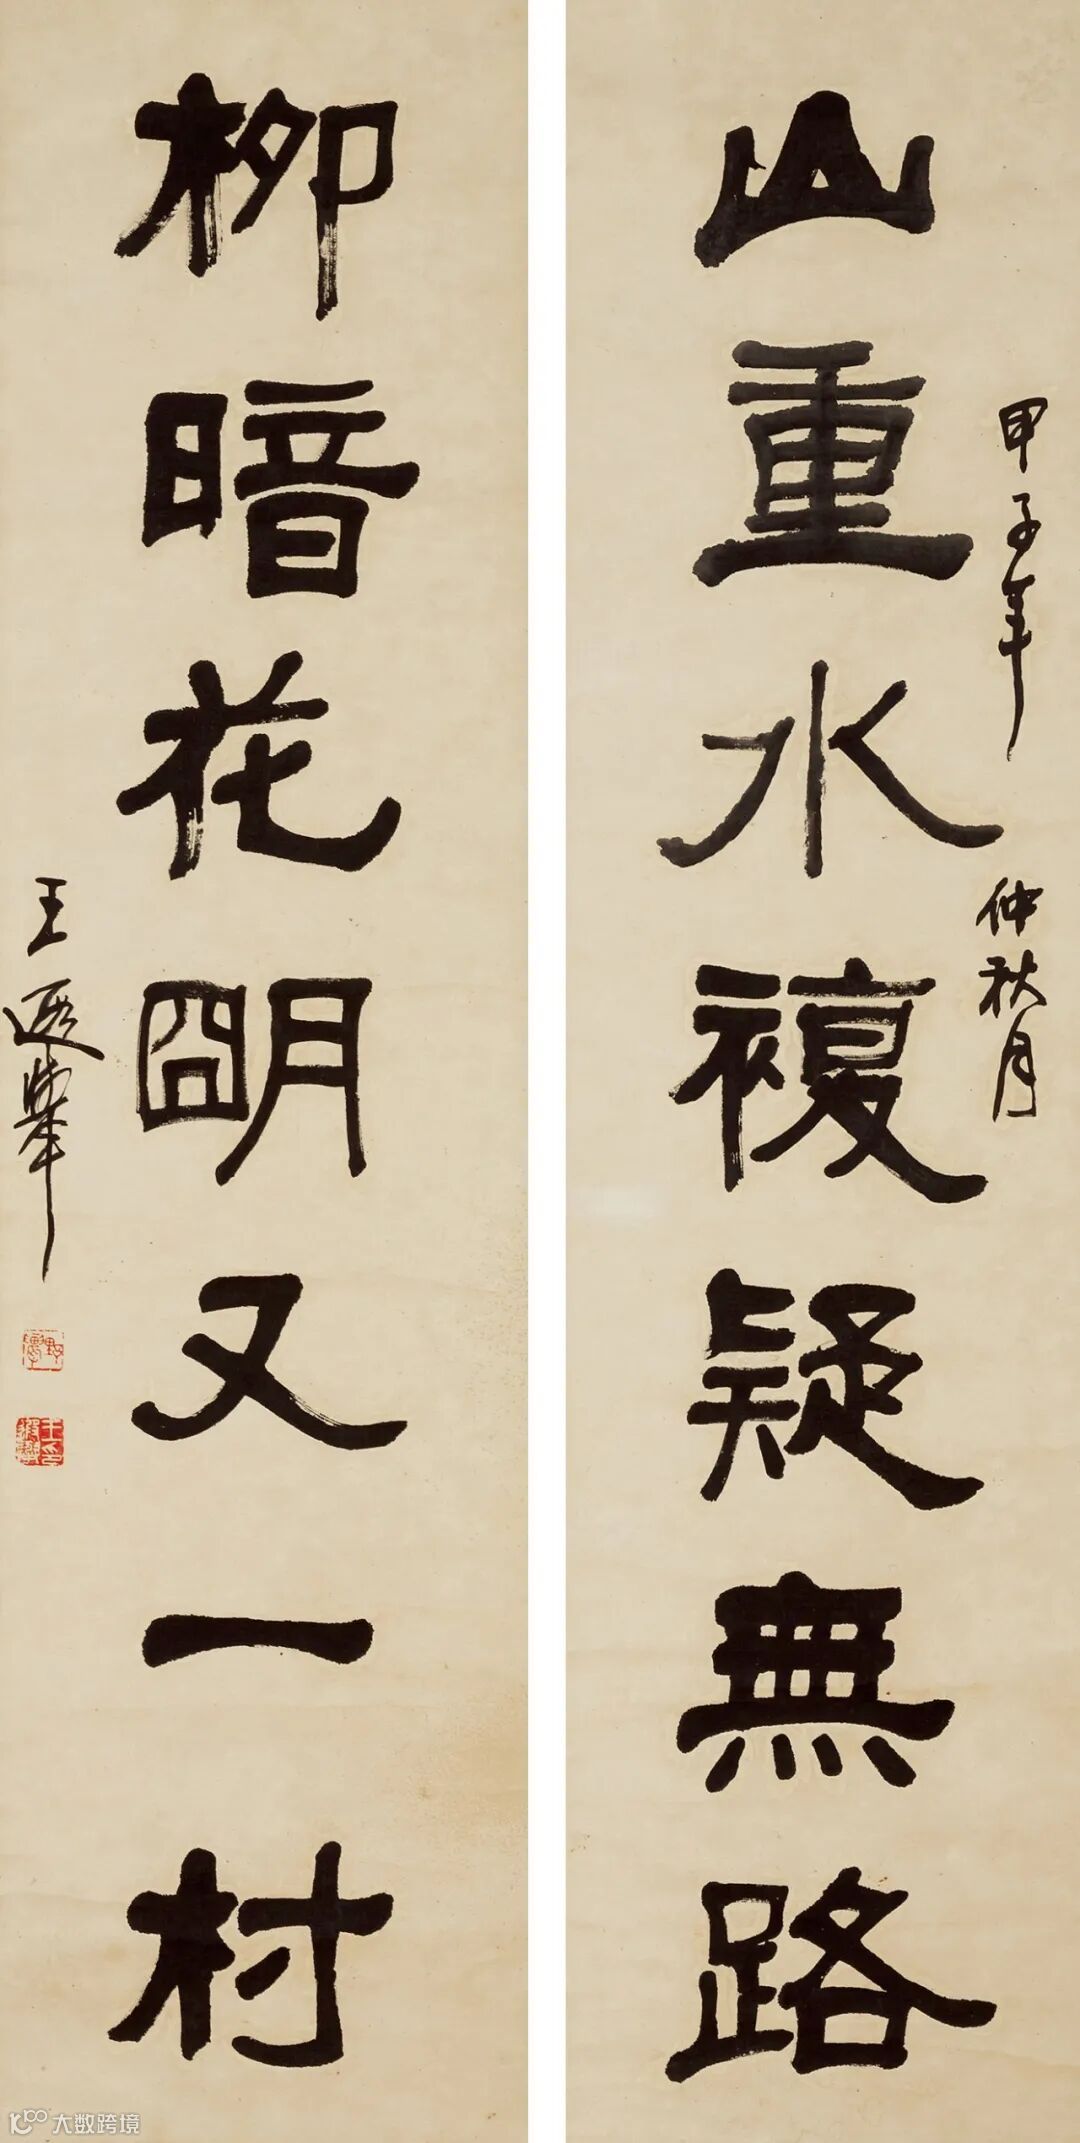 山重水複疑無路
甲子年
仲秋月
柳暗花明又一村
王遐舉
大数跨境